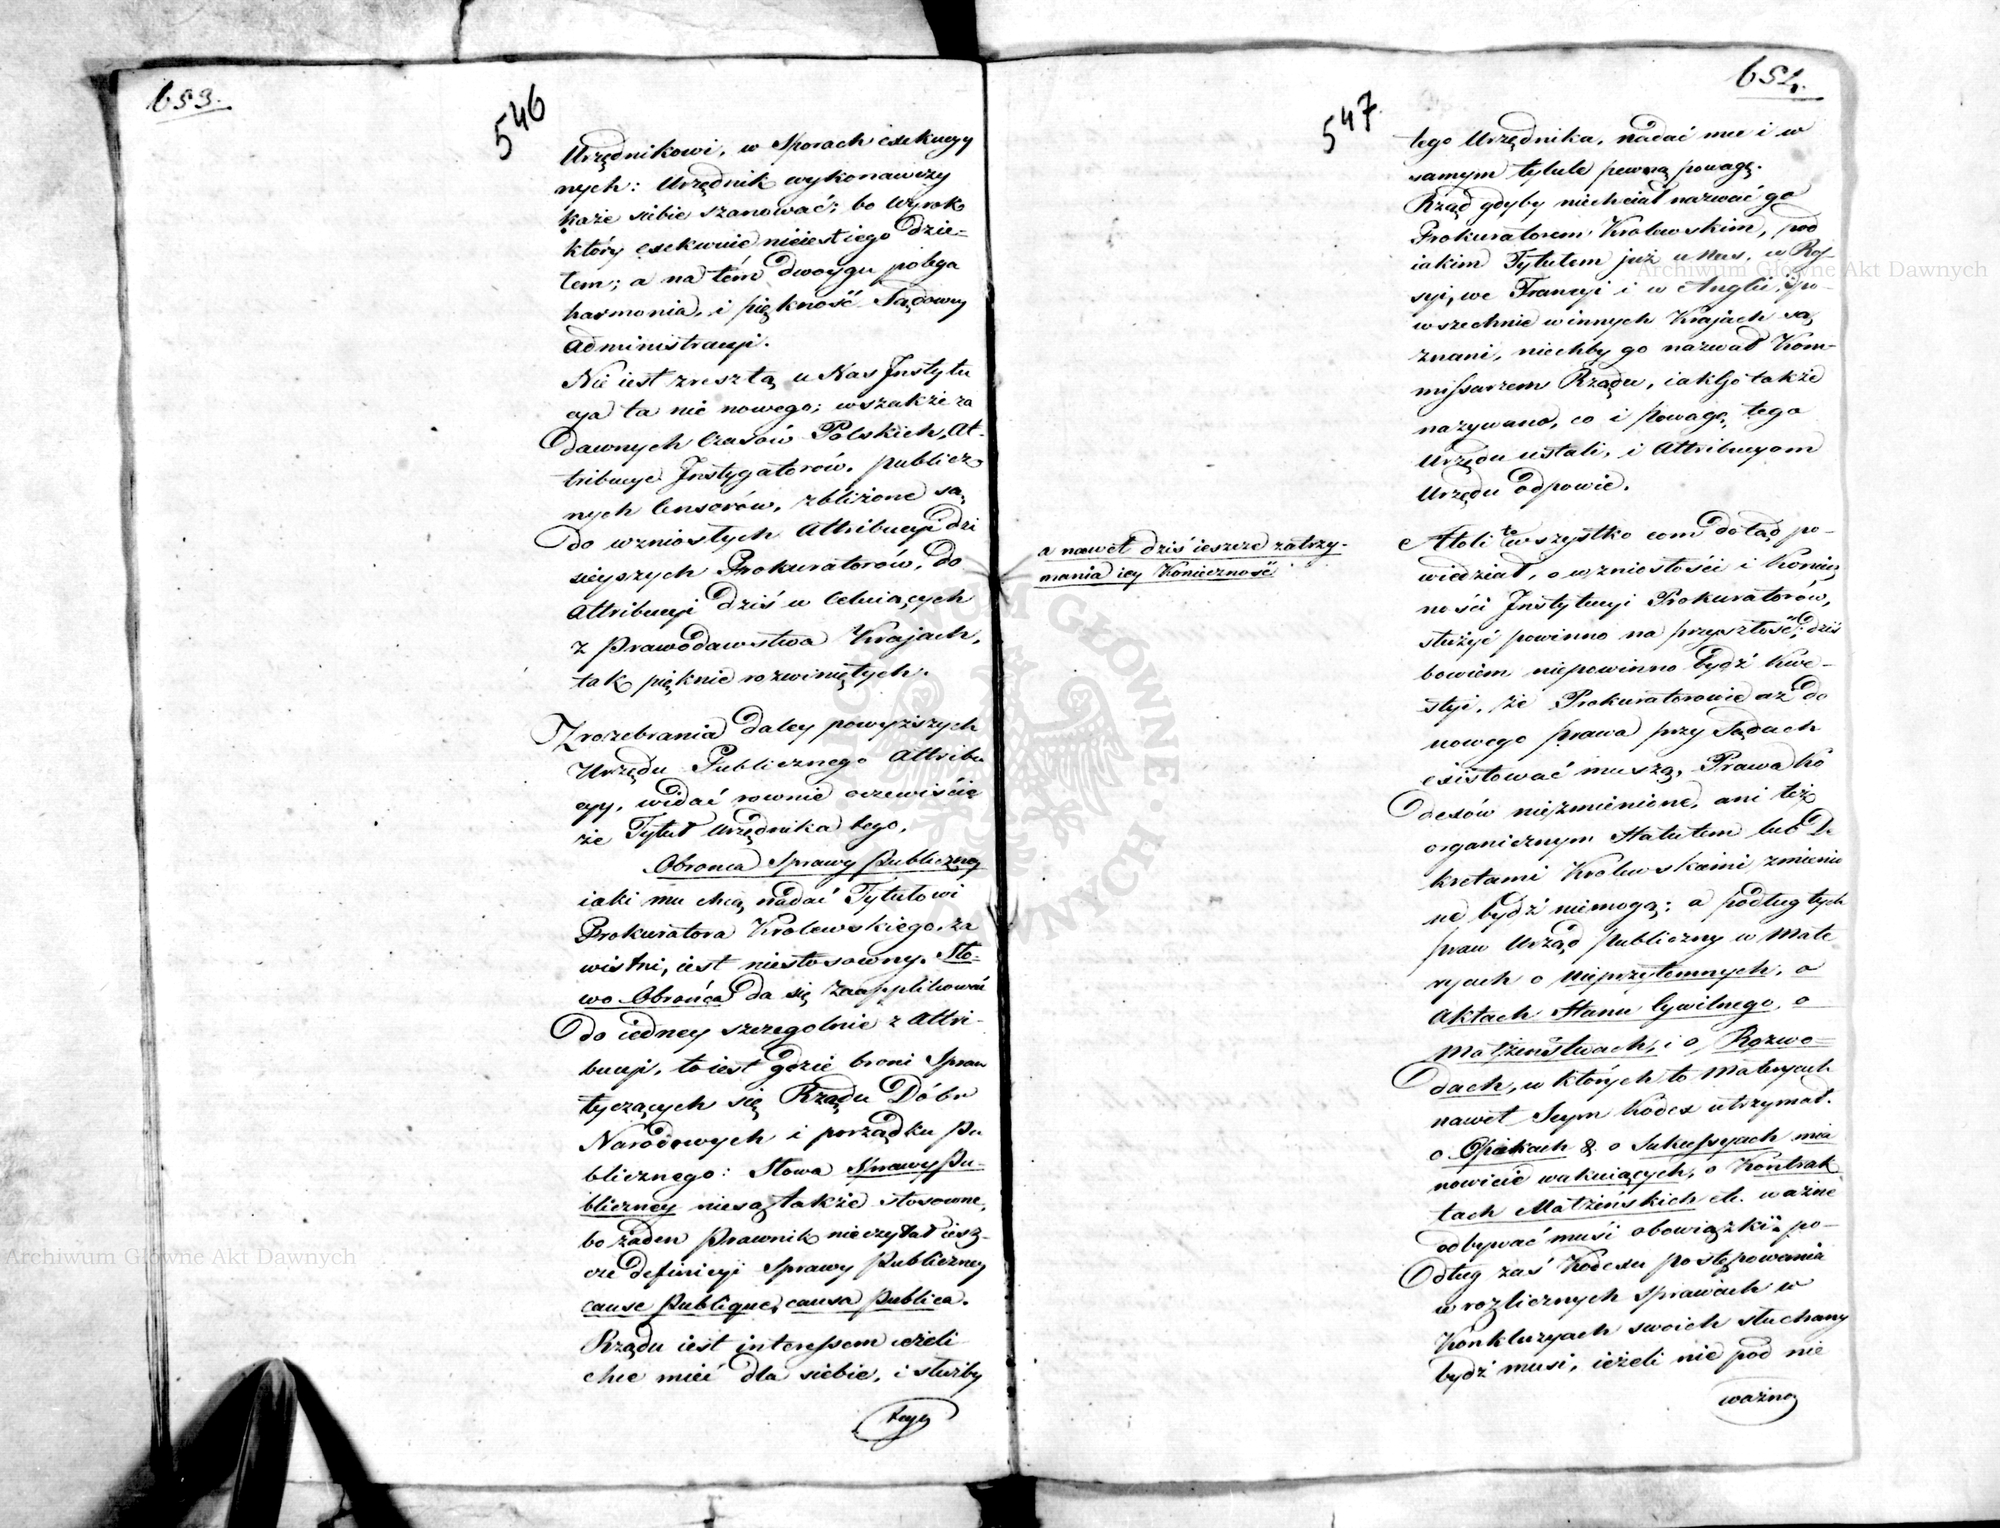 653.
546
Urzędnikowi, w Sporach exekucyy
nych: Urzędnik wykonawczy
każe siebie szanować; bo wyrok
który exekwuie nieiest iego dzie=
łem; a na tém dwoygu polega
harmonia, i piękność Sądowey
administracyi.
Nie iest zresztą u Nas Instytu
cya ta nic nowego; wszakże za
dawnych Czasów Polskich, At-
tribucye Instygatorów, publicz
nych Censorów, zbliżone są,
do wzniosłych Attribucyi dzi
sieyszych Prokuratorów, do
Attribucyi dziś w Celuiących
z Prawodawstwa Krajach,
tak pięknie rozwiniętych.
Z rozebrania daley powyższych
Urzędu Publicznego Attribu
cyy, widać rownie oczewiście
że Tytuł Urzędnika tego,
Obronca Sprawy Publiczney
iaki mu chcą nadać Tytułowi
Prokuratora Krolewskiego, za
wistni, iest niestosowny. Sło=
wo Obrońca da się zaapplikować
do iedney szczegolnie z Attri-
bucyi, to iest gdzie broni Spraw
tyczących się Rządu Dóbr
Narodowych i porządku Pu
blicznego: Słowa Sprawy Pu-
bliczney niesą także stosowne,
bo żaden Prawnik nieczytał iesz-
cze definicyi Sprawy Publiczney
cause Publique, causa Publica.
Rządu iest interessem ieżeli
chce mieć dla siebie, i służby
tego
654.
547
tego Urzędnika, nadać mu i w
samym tytule pewną powagę.
Rząd gdyby niechciał nazwać go
Prokuratorem Krolewskim, pod
iakim Tytułem już u Nas, w Ros-
syi, we Francyi i w Anglii, i po-
wszechnie w innych Krajach są
znani, niechby go nazwał Kom-
missarzem Rządu, iak Go także
nazywano, co i Powagę tego
Urzędu ustali, i Attribucyom
Urzędu odpowie.
a nawet dziś ieszcze zatrzy-
mania iey Konieczność
Atoli te wszystko com dotąd po-
wiedział, o wzniosłości i Koniecz
ności Instytucyi Prokuratorów,
służyć powinno na przyszłość; dziś
bowiem niepowinno bydź Kwe-
styi, że Prokuratorowie aż do
nowego prawa przy Sądach
existować muszą, Prawa Ko
dexów niezmienione, ani też
organicznym Statutem lub De
kretami Krolewskiemi zmienio
ne bydź niemogą; a podług tych
praw Urząd Publiczny w Mate
ryach o nieprzytomnych, o
Aktach Stanu Cywilnego, o
Małżeństwach, i o Rozwo=
dach, w których to Materyach
nawet Seym Kodex utrzymał.
o Opiekach & o Sukcessyach mia
nowicie wakuiących, o Kontrak
tach Małżeńskich etc. ważne
odbywać musi obowiązki: po-
dług zaś Kodexu postępowania
w rozlicznych sprawach w
Konkluzyach swoich słuchany
bydź musi, ieżeli nie pod nie
ważno
Archiwum Główne Akt Dawnych
Archiwum Główne Akt Dawnych